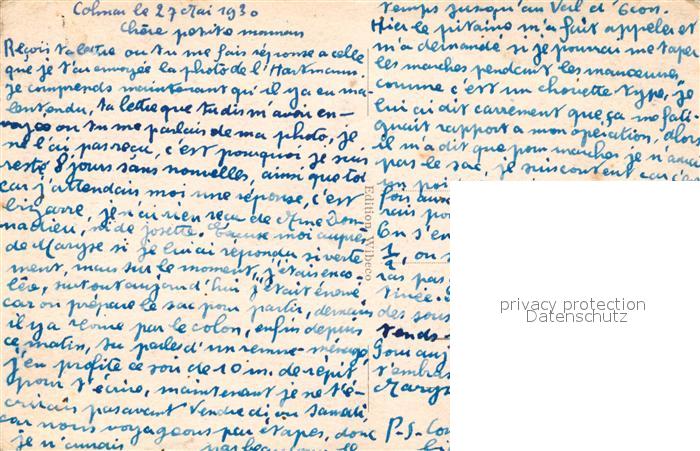 Colmar le 27 Mai 1930
Chère petite maman
Reçois ta lettre ou tu me fais réponse a celle
que je t'ai envoyée la photo de l'Hartmann
je comprends maintenant qu'il y a eu ma-
lentendu, ta lettre que tu dis m'avoir en-
voyée ou tu me parlais de ma photo, je
ne l'ai pas reçu, c'est pourquoi je suis
resté 8 jours sans nouvelles, ainsi que toi
car j'attendais moi une réponse, c'est
bizarre, je n'ai rien reçu de Mme Don-
nadieu, ni de Josette. Excuse moi auprès
de Maryse si je lui ai répondu si verte
ment, mais sur le moment, j'étais en co-
lère, surtout aujourd'hui j'était énervé
car on prépare le sac pour partir, demain
il y a revue par le colon, enfin depuis
ce matin, tu parles d'un remue-ménage,
j'en profite ce soir de 10 m. de répit
pour t'écrire, maintenant je ne t'é-
crirais pas avant Vendredi ou Samedi,
car nous voyageons par étapes, donc
je n'aurais par beaucoup
temps jusqu'au Val d'
Hier le pitaine m'a fait appeler et
m'a demandé si je pourrai me taper
les marches pendant les manœuvres,
comme c'est un chouette type, je
lui ai dit carrement que ça me fati-
guait rapport a mon opération, alors
il m'a dit que pour marcher je n'aurai
pas le sac, je suis content car c'est
un poi
fois au
rais po
On s'en
1/2, on
ras pas
tinée.
des sou
Vends
Gous auj
t'embras
Maryse
P-S. Con
Edition Wibeco
privacy protection
Datenschutz